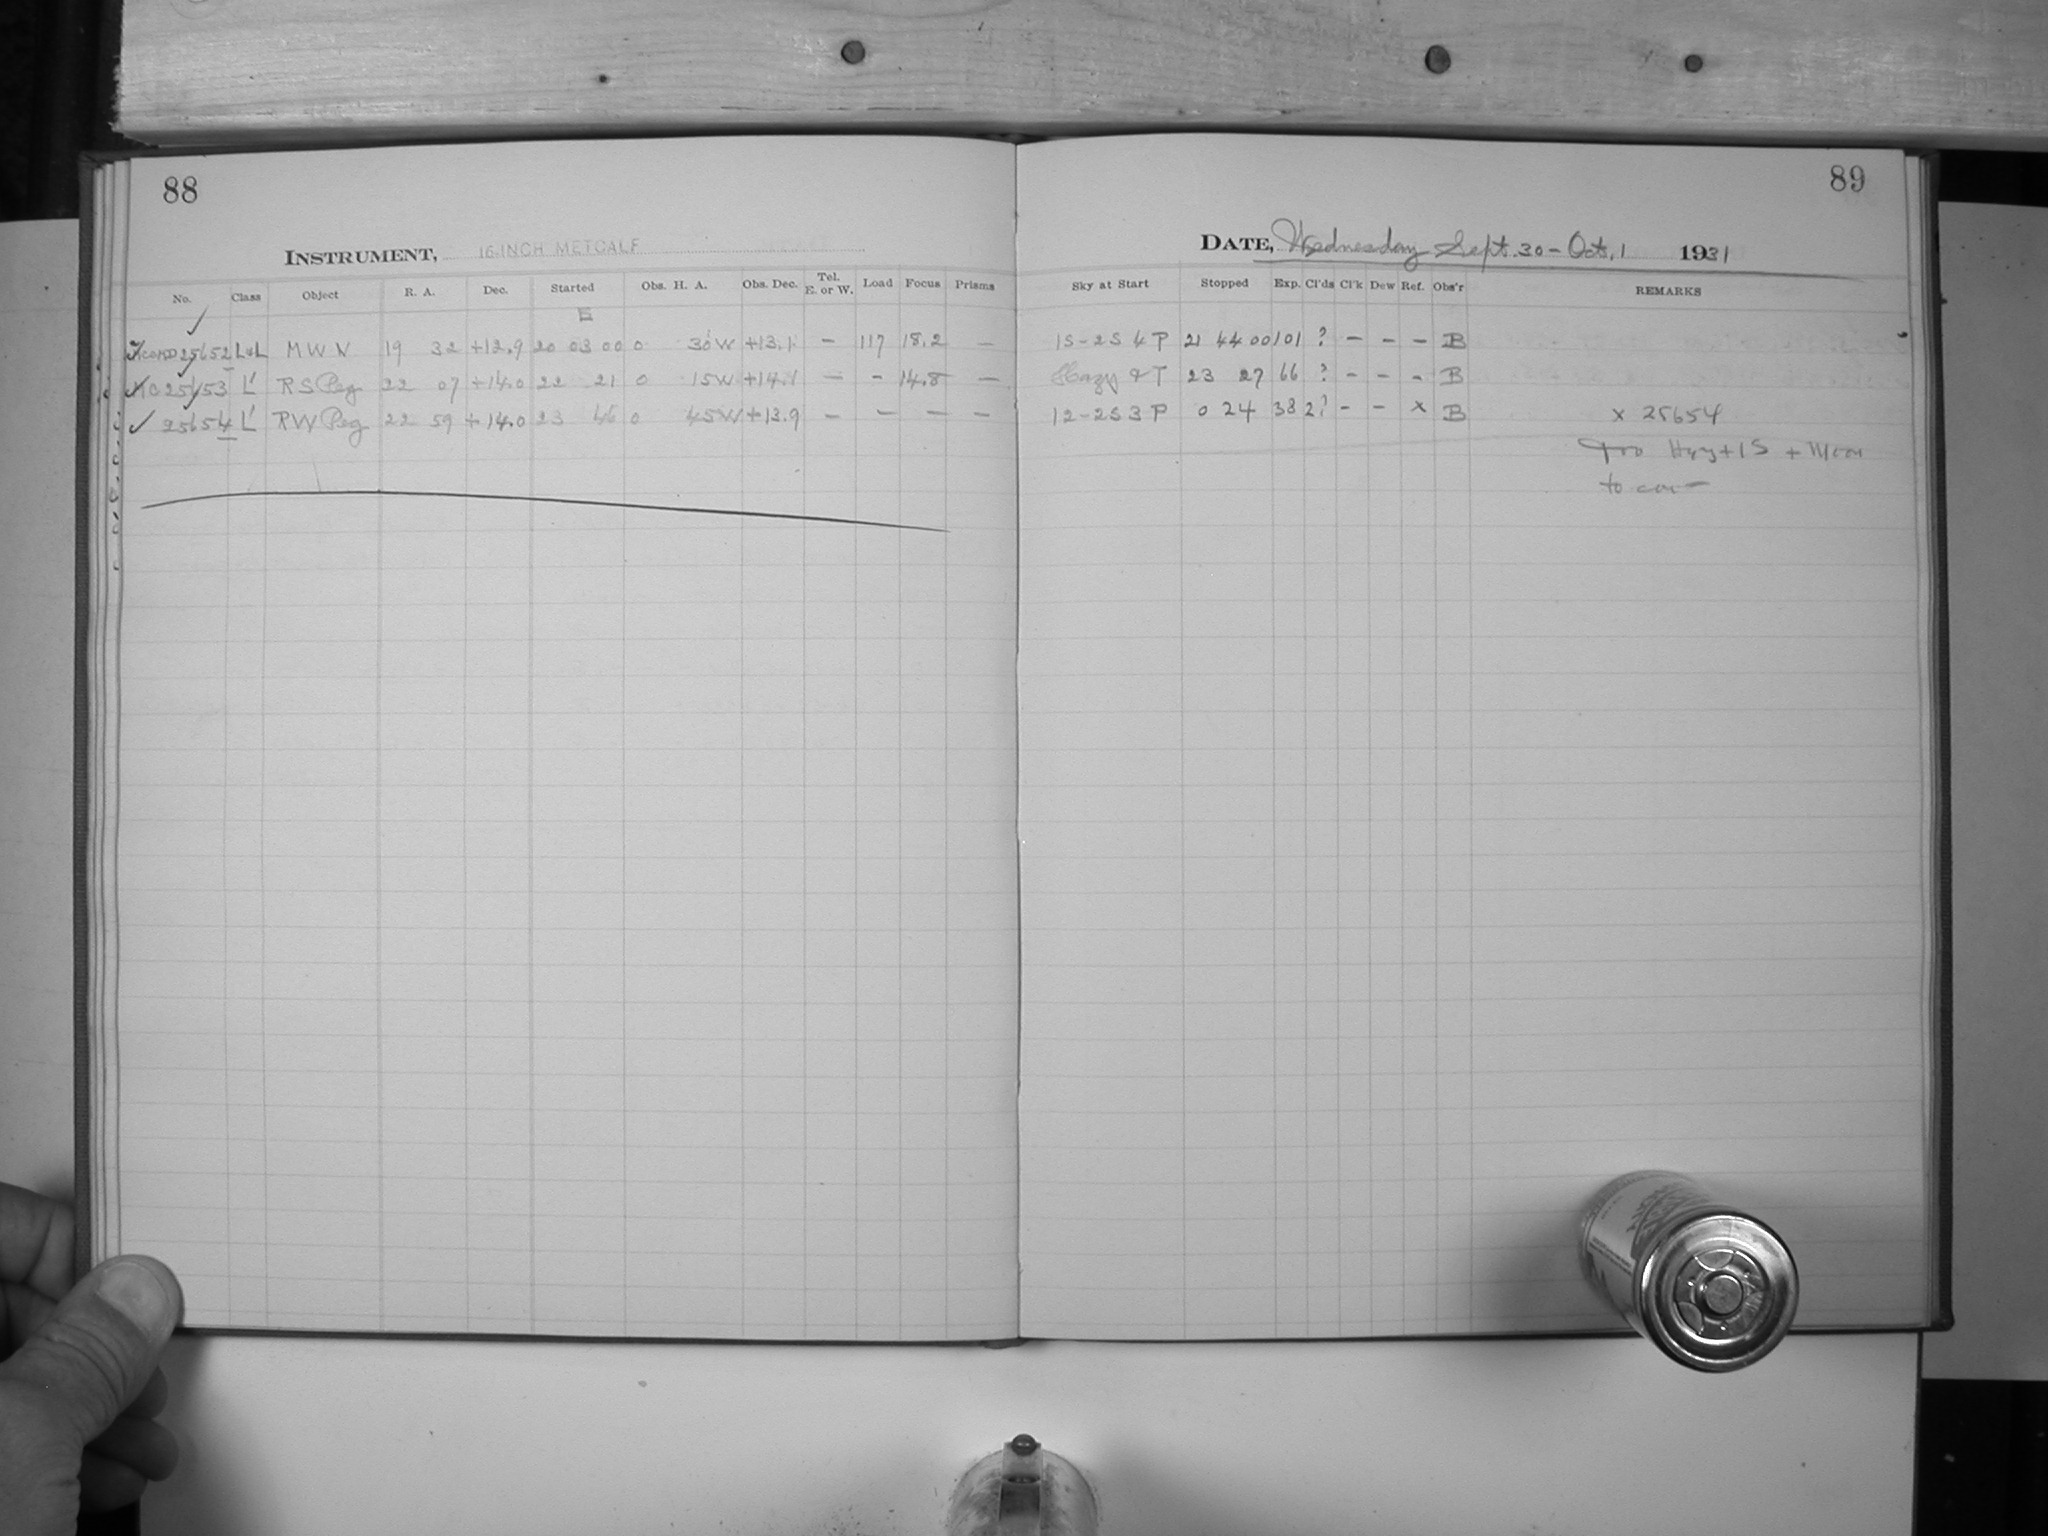 88
INSTRUMENT, 16-INCH METCALF
No. Class Object R. A. Dec. Started Obs. H. A. Obs. Dec. Tel. E. or W. Load Focus Prisms
E
25652 MWN 19 32 +12.9 20 03 00 0 30W +13.1 — 117 18.2 —
25653 L' RS Peg 22 07 +14.0 22 21 0 15W +14.1 — - 14.8 —
25654 L' RW Peg 22 59 +14.0 23 46 0 45W +13.9 — — — —
89
DATE, Wednesday Sept. 30 - Oct. 1 1931
Sky at Start Stopped Exp. Cl'ds Cl'k Dew Ref. Obs'r REMARKS
1S-2S 4 P 21 44 00 101 ? — — — B
Hazy & T 23 27 66 ? - - - B
12-2S 3 P 0 24 38 2? - - x B x 25654
Too +1S + Moon
to